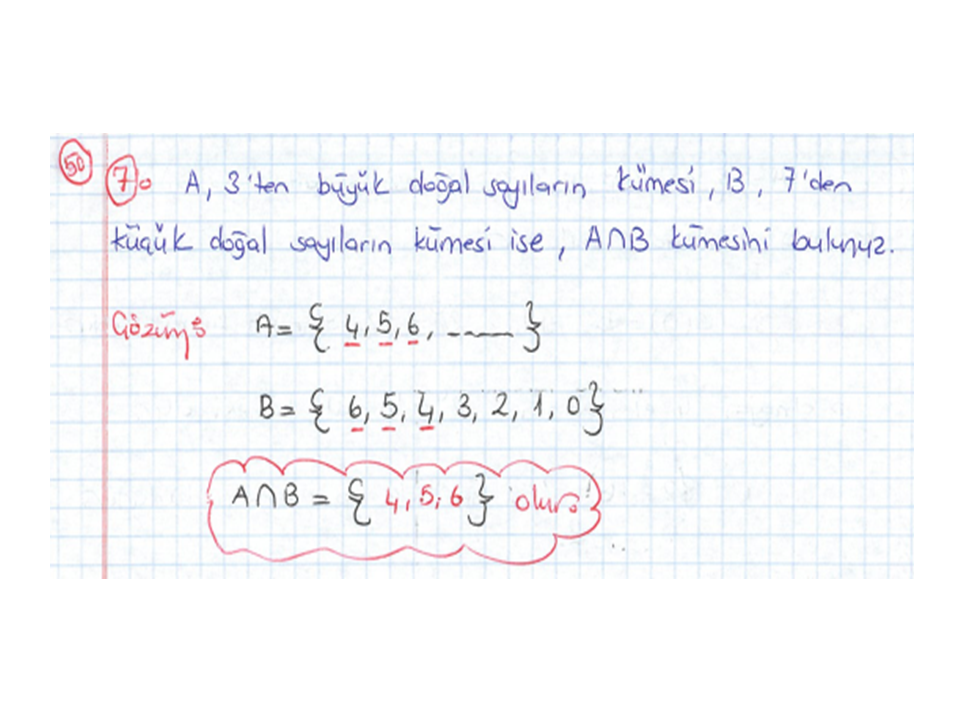 50 7. A, 3'ten büyük doğal sayıların kümesi, B, 7'den
küçük doğal sayıların kümesi ise, A∩B kümesini bulunuz.
Çözüm: A = { 4, 5, 6, ------ }
B = { 6, 5, 4, 3, 2, 1, 0 }
A∩B = { 4, 5, 6 } olur.